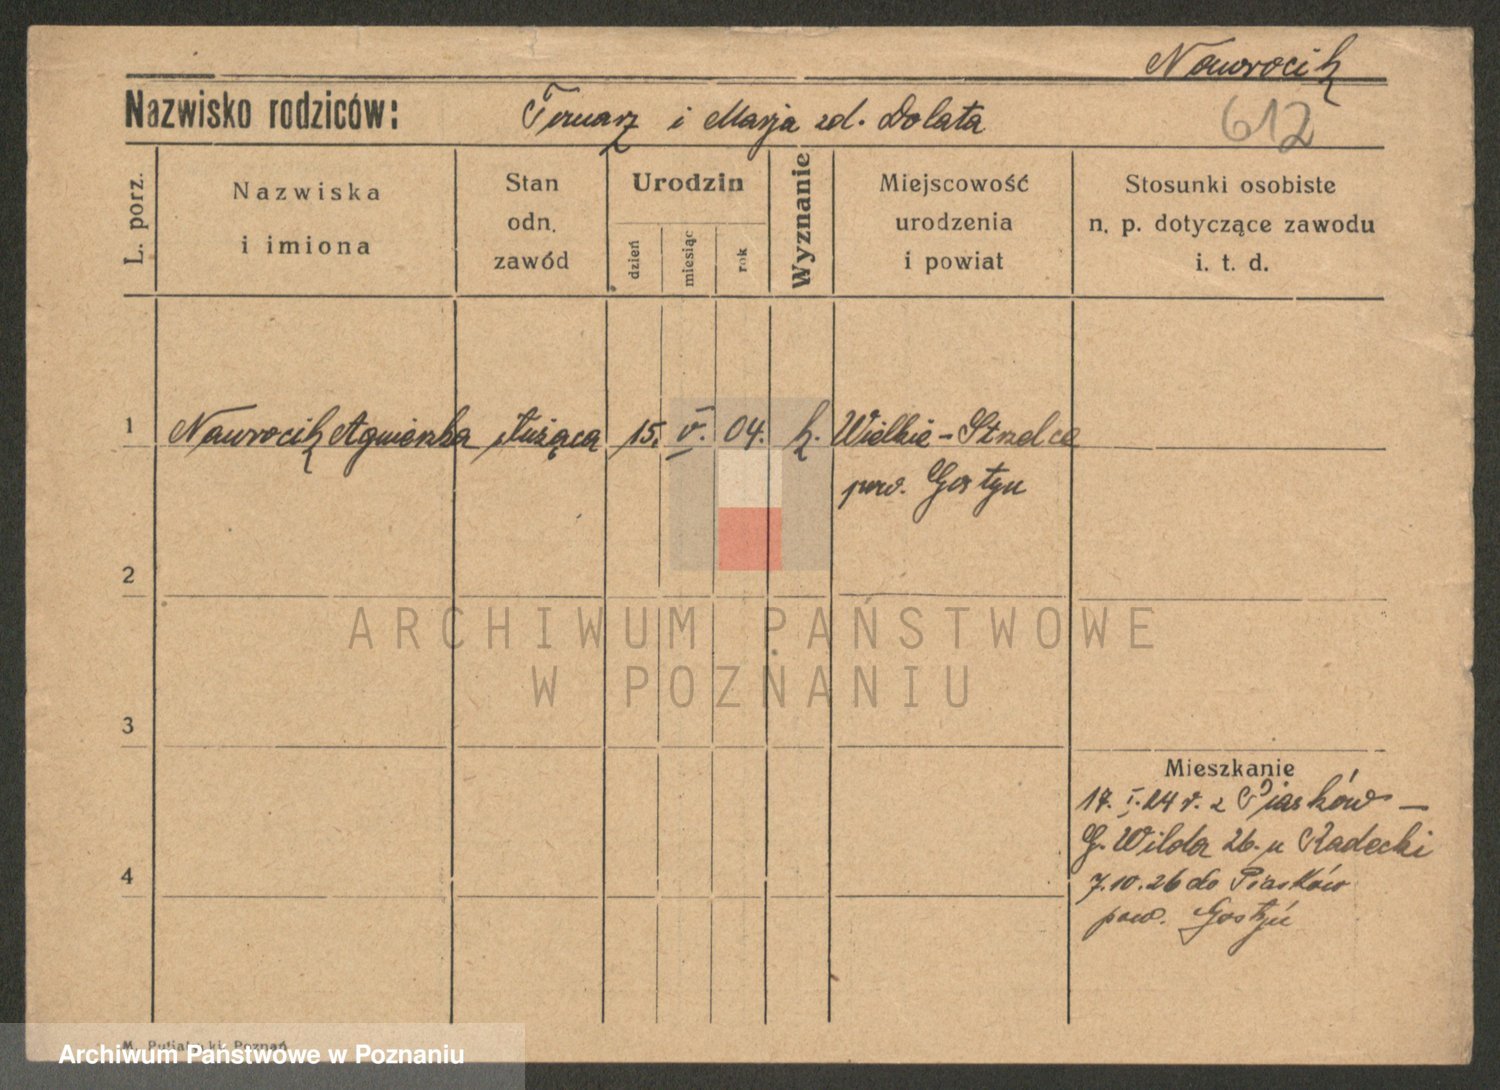 Nawrocik
Nazwisko rodziców:
i Marja zd. Dolata
612
L. porz.
Nazwiska
i imiona
Stan
odn.
zawód
Urodzin
dzień
miesiąc
rok
Wyznanie
Miejscowość
urodzenia
i powiat
Stosunki osobiste
n. p. dotyczące zawodu
i. t. d.
1 Nawrocik Agnieszka służąca 15. V. 04. k. Wielkie-Strzelce
pow. Gostyn
2
ARCHIWUM PAŃSTWOWE
W POZNANIU
3
Mieszkanie
17. I. 24 r. z Piasków –
G. Wilda 26. u Radecki
4
7.10.26 do Piasków
pow. Gostyń
M. Putiatycki, Poznań
Archiwum Państwowe w Poznaniu